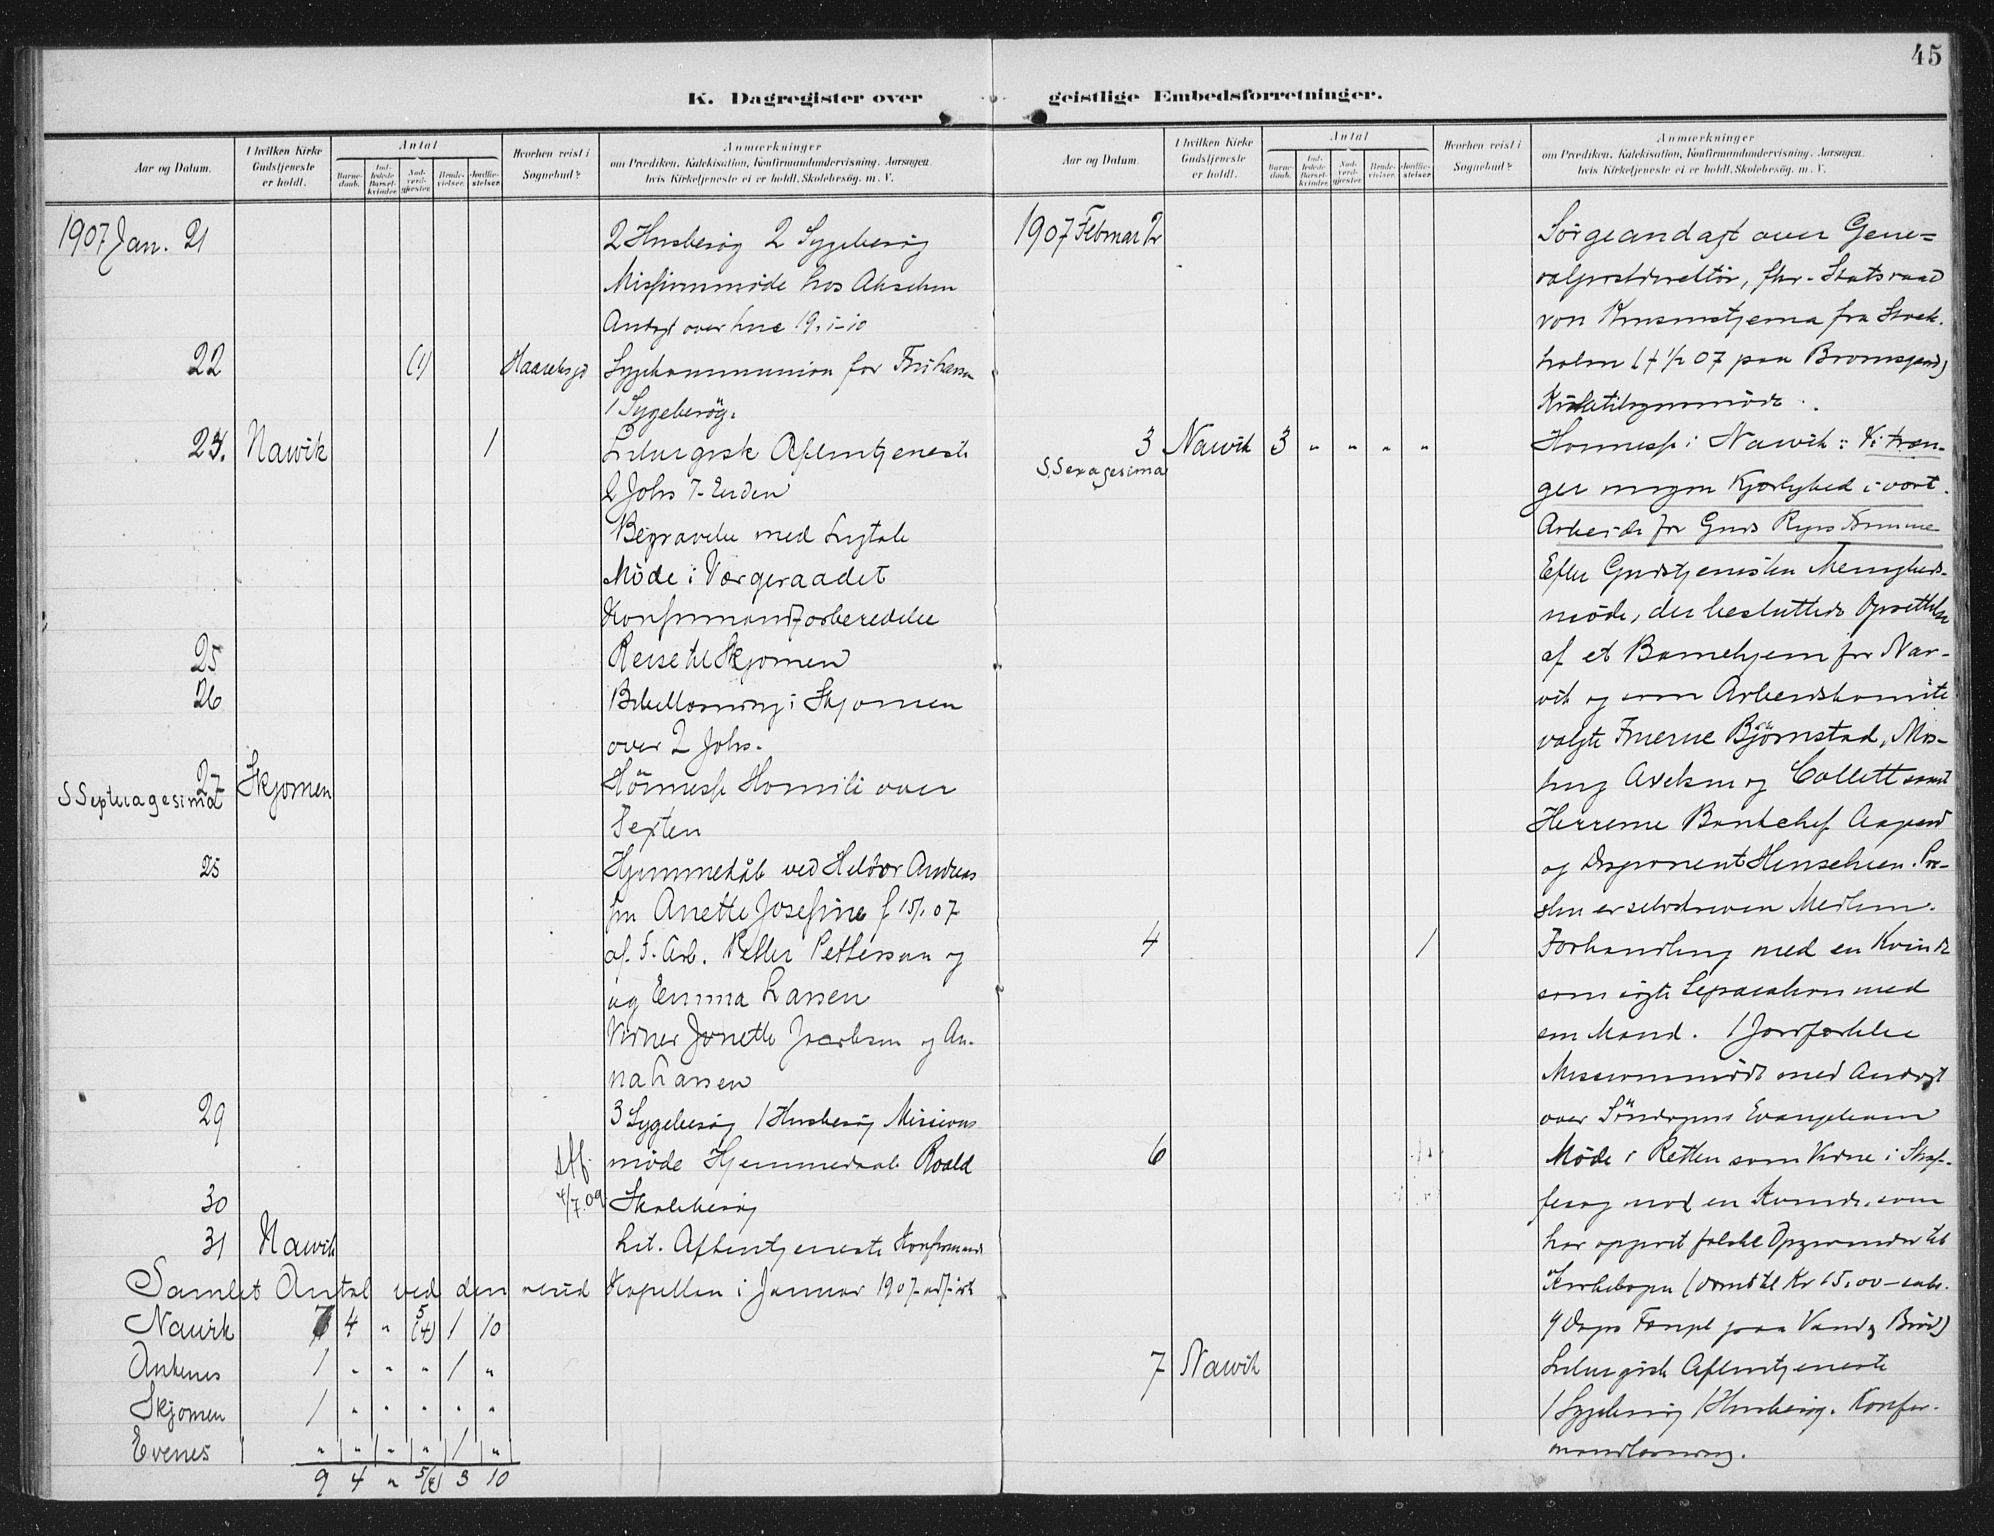 45
K. Dagregister over geistlige Embedsforretninger.
Aar og Datum.
I hvilken Kirke Gudstjeneste er holdt.
Antal
Barnedaab.
Indledede Barselkvinder.
Nadverdgjester.
Brudevielser.
Jordfæstelser.
Hvorhen reist i Sognebud?
Anmærkninger
om Prædiken, Katekisation, Konfirmandundervisning, Aarsagen,
hvis Kirketjeneste ei er holdt, Skolebesøg, m. V.
1907 Jan. 21
2 Husbesøg 2 Sygebesøg
Missionsmøde hos
over Luc 19, 1-10
22 (1)
Sygekommunion for
1 Sygebesøg.
Narvik 1
Liturgisk Aftentjeneste
2 Johs
Begravelse med Ligtale
Møde i Værgeraadet
Konfirmandforberedelse
25 Reise til Skjomen
26 Bibellæsning i Skjomen
over 2 Johs.
27 Skjomen
S Septuagesima
Høimesse Homili over
Texten
25 Hjemmedåb ved
Anette Josefine f 15/1 07
af F. Arb. Petter Pettersen og
og Emma Larsen
Vidner Jonette Jacobsen og An-
na Larsen
29 3 Sygebesøg 1 Husbesøg Missions
møde Hjemmedaab Roald
30 Skolebesøg
31 Narvik Lit. Aftentjeneste Konfirmand
Samlet Antal ved den Kapellan i Januar 1907
Narvik 7 4 " 5 (4) 1 10
Ankenes 1 " " " 1 "
Skjomen 1 " " " " "
Evenes " " " " 1 "
9 4 " 3 10
Aar og Datum.
I hvilken Kirke Gudstjeneste er holdt.
Antal
Barnedaab.
Indledede Barselkvinder.
Nadverdgjester.
Brudevielser.
Jordfæstelser.
Hvorhen reist i Sognebud?
Anmærkninger
om Prædiken, Katekisation, Konfirmandundervisning, Aarsagen,
hvis Kirketjeneste ei er holdt, Skolebesøg, m. V.
1907 Februar 2
Sørgeandagt over Gene-
ralpostdirektør, fhv. Statsraad
von Krusenstjerna fra Stock-
holm († 1/2 07 paa
Kirketilsynsmøde.
3 Narvik 3 " " " "
S. Sexagesima
Høimesse i Narvik: Vi træn-
ger megen Kjærlighed i vort
Arbeide for Guds Riges Fremme
Efter Gudstjenesten Menigheds-
møde, der besluttede Oprettelse
af et Barnehjem for Nar-
vik og som Arbeidskomite
valgte Fruerne Bjørnstad, Mos-
Axelsen og Collett samt
Herrerne Bankchef
og Disponent Henschien. Præ-
sten er selvskreven Medlem.
4 1
Forhandling med en Kvinde
som søgte Separation med
sin Mand. 1 Jordfæstelse
Missionsmøde med Andagt
over Søndagens Evangelium
6 Møde i Retten som Vidne i Straf-
fesag mod en Kvinde, som
har opgivet falske Opgivender til
Kirkebogen (dømt til Kr 15,00
4 Dages Fængsel paa Vand og Brød)
7 Narvik Liturgisk Aftentjeneste
1 Sygebesøg 1 Husbesøg. Konfir-
mandlæsning.